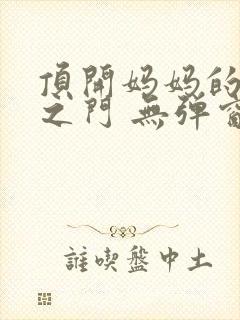 頂開妈妈的
之门 無弹窗
誰喫盤中土